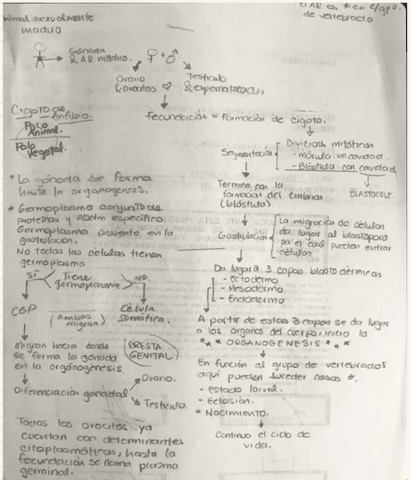 animal sexualmente
maduro
El AR es ≠ en c/gpo.
de vertebrado
Gónada
& AR. médico.
♀ + ♂
Ovario
& ovocitos
Testículo
& espermatozoides
Fecundación = formación de cigoto.
Cigoto de
Anfibio.
Polo
Animal.
Polo
Vegetal.
Segmentación
Divisiones mitóticas
- mórula sin cavidad.
- Blástula con cavidad.
BLASTOCELE
Termina con la
formación del embrión
(blástula)
* La gónada se forma
hasta la organogénesis.
* Germoplasma conjunto de
proteínas y ADNm específico.
Germoplasma presente en la
gastrulación.
No todas las células tienen
germoplasma
Gastrulación
La migración de células
da lugar al blastoporo
por el cual puedan entrar
células.
Da lugar a 3 capas blastodérmicas
- Ectodermo
- Mesodermo
- Endodermo
SI
Tiene
germoplasma
NO.
CGP
(Ambas
migran)
Célula
Somática.
A partir de estas 3 capas se da lugar
a los órganos del cuerpo, inicia la
* * ORGANOGENESIS * *
Migran hacia donde
se forma la gónada
en la organogénesis.
CRESTA
GENITAL
En función al grupo de vertebrados
aquí pueden suceder cosas ≠.
- Estado larval.
- Eclosión.
- Nacimiento.
Diferenciación gonadal
Ovario.
Testículo.
Continua el ciclo de
vida.
Todos los ovocitos ya
cuentan con determinantes
citoplasmáticos, hasta la
fecundación se llama plasma
germinal.